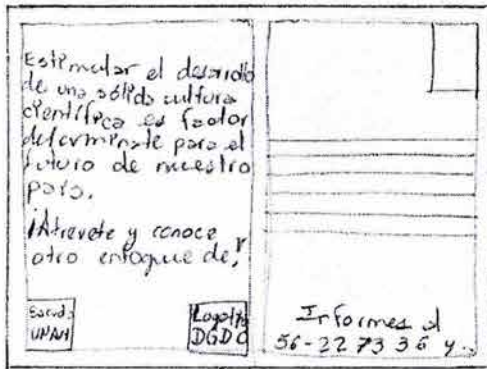 Estimular el desarrollo
de una sólida cultura
científica es factor
determinate para el
futuro de nuestro
país.
¡Atrevete y conoce
otro enfoque de,
Escudo
UNAM
DGDC
Informes al
56-22 73 36 y..